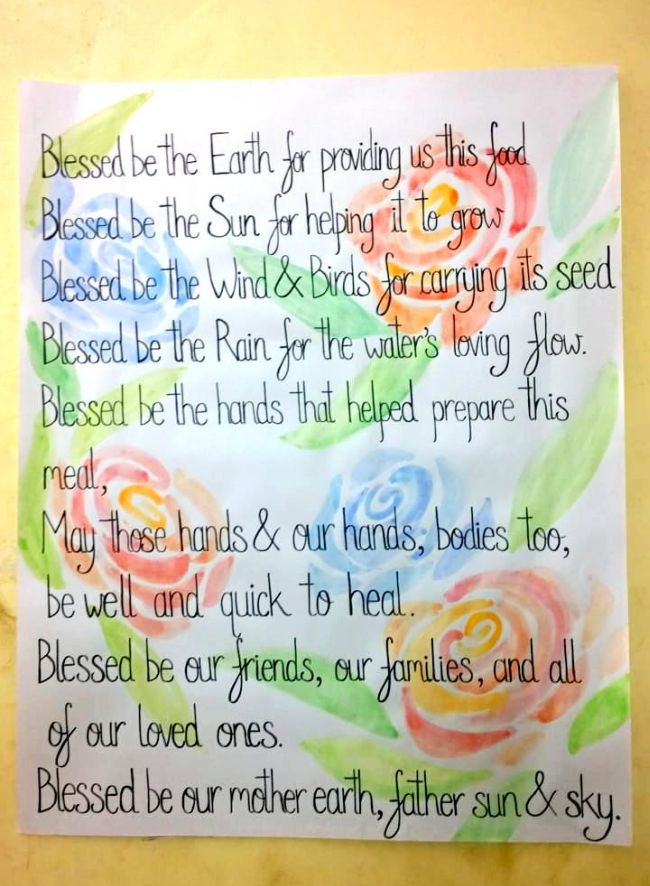 Blessed be the Earth for providing us this food
Blessed be the Sun for helping it to grow
Blessed be the Wind & Birds for carrying its seed
Blessed be the Rain for the water's loving flow.
Blessed be the hands that helped prepare this
meal,
May those hands & our hands, bodies too,
be well and quick to heal.
Blessed be our friends, our families, and all
of our loved ones.
Blessed be our mother earth, father sun & sky.